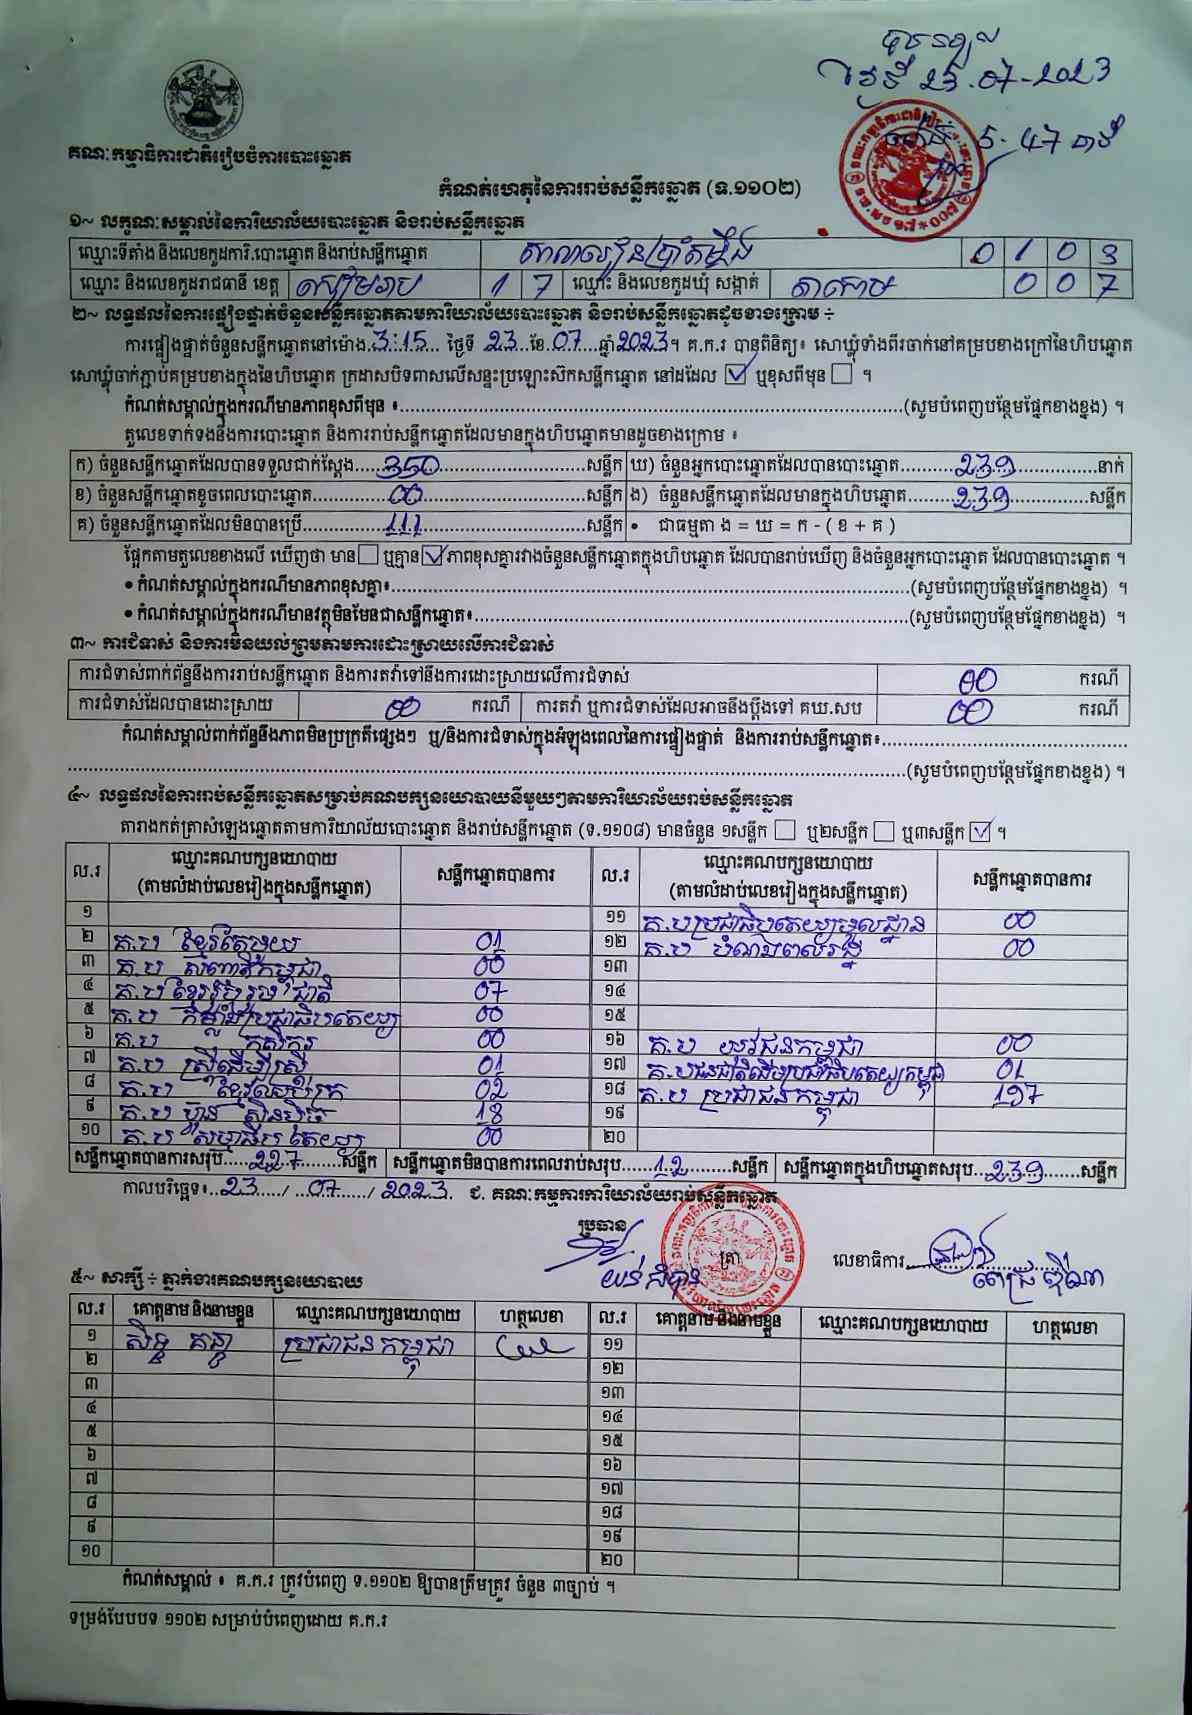 ថ្ងៃទី 23.07-2023
5-47 នាទី
គណៈកម្មាធិការជាតិរៀបចំការបោះឆ្នោត
កំណត់ហេតុនៃការរាប់សន្លឹកឆ្នោត (ទ.១១០២)
១~ លក្ខណៈសម្គាល់នៃការិយាល័យបោះឆ្នោត និងរាប់សន្លឹកឆ្នោត
ឈ្មោះទីតាំង និងលេខកូដការិ.បោះឆ្នោត និងរាប់សន្លឹកឆ្នោត សាលារៀនប្រាំតម្លឹង 0 1 0 3
ឈ្មោះ និងលេខកូដរាជធានី ខេត្ត សៀមរាប 1 7 ឈ្មោះ និងលេខកូដឃុំ សង្កាត់ តាសោម 0 0 7
២~ លទ្ធផលនៃការផ្ទៀងផ្ទាត់ចំនួនសន្លឹកឆ្នោតតាមការិយាល័យបោះឆ្នោត និងរាប់សន្លឹកឆ្នោតដូចខាងក្រោម ÷
ការផ្ទៀងផ្ទាត់ចំនួនសន្លឹកឆ្នោតនៅម៉ោង 3:15 ថ្ងៃទី 23 ខែ 07 ឆ្នាំ 2023 ។ គ.ក.រ បានពិនិត្យ៖ សោឃ្លុំទាំងពីរចាក់នៅគម្របខាងក្រៅនៃហិបឆ្នោត
សោឃ្លុំចាក់ភ្ជាប់គម្របខាងក្នុងនៃហិបឆ្នោត ក្រដាសបិទពាសលើសន្ទះប្រឡោះស៊កសន្លឹកឆ្នោត នៅដដែល ☑ ឬខុសពីមុន ☐ ។
កំណត់សម្គាល់ក្នុងករណីមានភាពខុសពីមុន ៖ (សូមបំពេញបន្ថែមផ្នែកខាងខ្នង) ។
តួលេខទាក់ទងនឹងការបោះឆ្នោត និងការរាប់សន្លឹកឆ្នោតដែលមានក្នុងហិបឆ្នោតមានដូចខាងក្រោម ៖
ក) ចំនួនសន្លឹកឆ្នោតដែលបានទទួលជាក់ស្តែង 350 សន្លឹក ឃ) ចំនួនអ្នកបោះឆ្នោតដែលបានបោះឆ្នោត 239 នាក់
ខ) ចំនួនសន្លឹកឆ្នោតខូចពេលបោះឆ្នោត 00 សន្លឹក ង) ចំនួនសន្លឹកឆ្នោតដែលមានក្នុងហិបឆ្នោត 239 សន្លឹក
គ) ចំនួនសន្លឹកឆ្នោតដែលមិនបានប្រើ 111 សន្លឹក • ជាធម្មតា ង = ឃ = ក - ( ខ + គ )
ផ្អែកតាមតួលេខខាងលើ ឃើញថា មាន ☐ ឬគ្មាន ☑ ភាពខុសគ្នារវាងចំនួនសន្លឹកឆ្នោតក្នុងហិបឆ្នោត ដែលបានរាប់ឃើញ និងចំនួនអ្នកបោះឆ្នោត ដែលបានបោះឆ្នោត ។
• កំណត់សម្គាល់ក្នុងករណីមានភាពខុសគ្នា៖ (សូមបំពេញបន្ថែមផ្នែកខាងខ្នង) ។
• កំណត់សម្គាល់ក្នុងករណីមានវត្ថុមិនមែនជាសន្លឹកឆ្នោត៖ (សូមបំពេញបន្ថែមផ្នែកខាងខ្នង) ។
៣~ ការជំទាស់ និងការមិនយល់ព្រមតាមការដោះស្រាយលើការជំទាស់
ការជំទាស់ពាក់ព័ន្ធនឹងការរាប់សន្លឹកឆ្នោត និងការតវ៉ាទៅនឹងការដោះស្រាយលើការជំទាស់ 00 ករណី
ការជំទាស់ដែលបានដោះស្រាយ 00 ករណី ការតវ៉ា ឬការជំទាស់ដែលអាចនឹងប្តឹងទៅ គឃ.សប 00 ករណី
កំណត់សម្គាល់ពាក់ព័ន្ធនឹងភាពមិនប្រក្រតីផ្សេងៗ ឬ/និងការជំទាស់ក្នុងអំឡុងពេលនៃការផ្ទៀងផ្ទាត់ និងការរាប់សន្លឹកឆ្នោត៖
(សូមបំពេញបន្ថែមផ្នែកខាងខ្នង) ។
៤~ លទ្ធផលនៃការរាប់សន្លឹកឆ្នោតសម្រាប់គណបក្សនយោបាយនីមួយៗតាមការិយាល័យរាប់សន្លឹកឆ្នោត
តារាងកត់ត្រាសំឡេងឆ្នោតតាមការិយាល័យបោះឆ្នោត និងរាប់សន្លឹកឆ្នោត (ទ.១១០៨) មានចំនួន ១សន្លឹក ☐ ឬ២សន្លឹក ☐ ឬ៣សន្លឹក ☑ ។
ល.រ ឈ្មោះគណបក្សនយោបាយ (តាមលំដាប់លេខរៀងក្នុងសន្លឹកឆ្នោត) សន្លឹកឆ្នោតបានការ ល.រ ឈ្មោះគណបក្សនយោបាយ (តាមលំដាប់លេខរៀងក្នុងសន្លឹកឆ្នោត) សន្លឹកឆ្នោតបានការ
១ ១១ គ.បប្រជាធិបតេយ្យមូលដ្ឋាន 00
២ គ.ប ខ្មែរតែមួយ 01 ១២ គ.ប បំណងពលរដ្ឋ 00
៣ គ.ប សញ្ជាតិកម្ពុជា 00 ១៣
៤ គ.ប ខ្មែររួបរួមជាតិ 07 ១៤
៥ គ.ប កម្លាំងប្រជាធិបតេយ្យ 00 ១៥
៦ គ.ប កសិករ 00 ១៦ គ.ប យុវជនកម្ពុជា 00
៧ គ.ប ស្ត្រីដើម្បីស្ត្រី 01 ១៧ គ.បជនជាតិដើមប្រជាធិបតេយ្យកម្ពុជា 01
៨ គ.ប ខ្មែរឈប់ក្រ 02 ១៨ គ.ប ប្រជាជនកម្ពុជា 197
៩ គ.ប ហ៊្វុនស៊ិនប៉ិច 18 ១៩
១០ គ.ប សមាធិបតេយ្យ 00 ២០
សន្លឹកឆ្នោតបានការសរុប 227 សន្លឹក សន្លឹកឆ្នោតមិនបានការពេលរាប់សរុប 12 សន្លឹក សន្លឹកឆ្នោតក្នុងហិបឆ្នោតសរុប 239 សន្លឹក
កាលបរិច្ឆេទ៖ 23 / 07 / 2023. ជ. គណៈកម្មការការិយាល័យរាប់សន្លឹកឆ្នោត
ប្រធាន ត្រា លេខាធិការ
៥~ សាក្សី ÷ ភ្នាក់ងារគណបក្សនយោបាយ
ល.រ គោត្តនាម និងនាមខ្លួន ឈ្មោះគណបក្សនយោបាយ ហត្ថលេខា ល.រ គោត្តនាម និងនាមខ្លួន ឈ្មោះគណបក្សនយោបាយ ហត្ថលេខា
១ ប្រជាជនកម្ពុជា ១១
២ ១២
៣ ១៣
៤ ១៤
៥ ១៥
៦ ១៦
៧ ១៧
៨ ១៨
៩ ១៩
១០ ២០
កំណត់សម្គាល់ ៖ គ.ក.រ ត្រូវបំពេញ ទ.១១០២ ឱ្យបានត្រឹមត្រូវ ចំនួន ៣ច្បាប់ ។
ទម្រង់បែបបទ ១១០២ សម្រាប់បំពេញដោយ គ.ក.រ